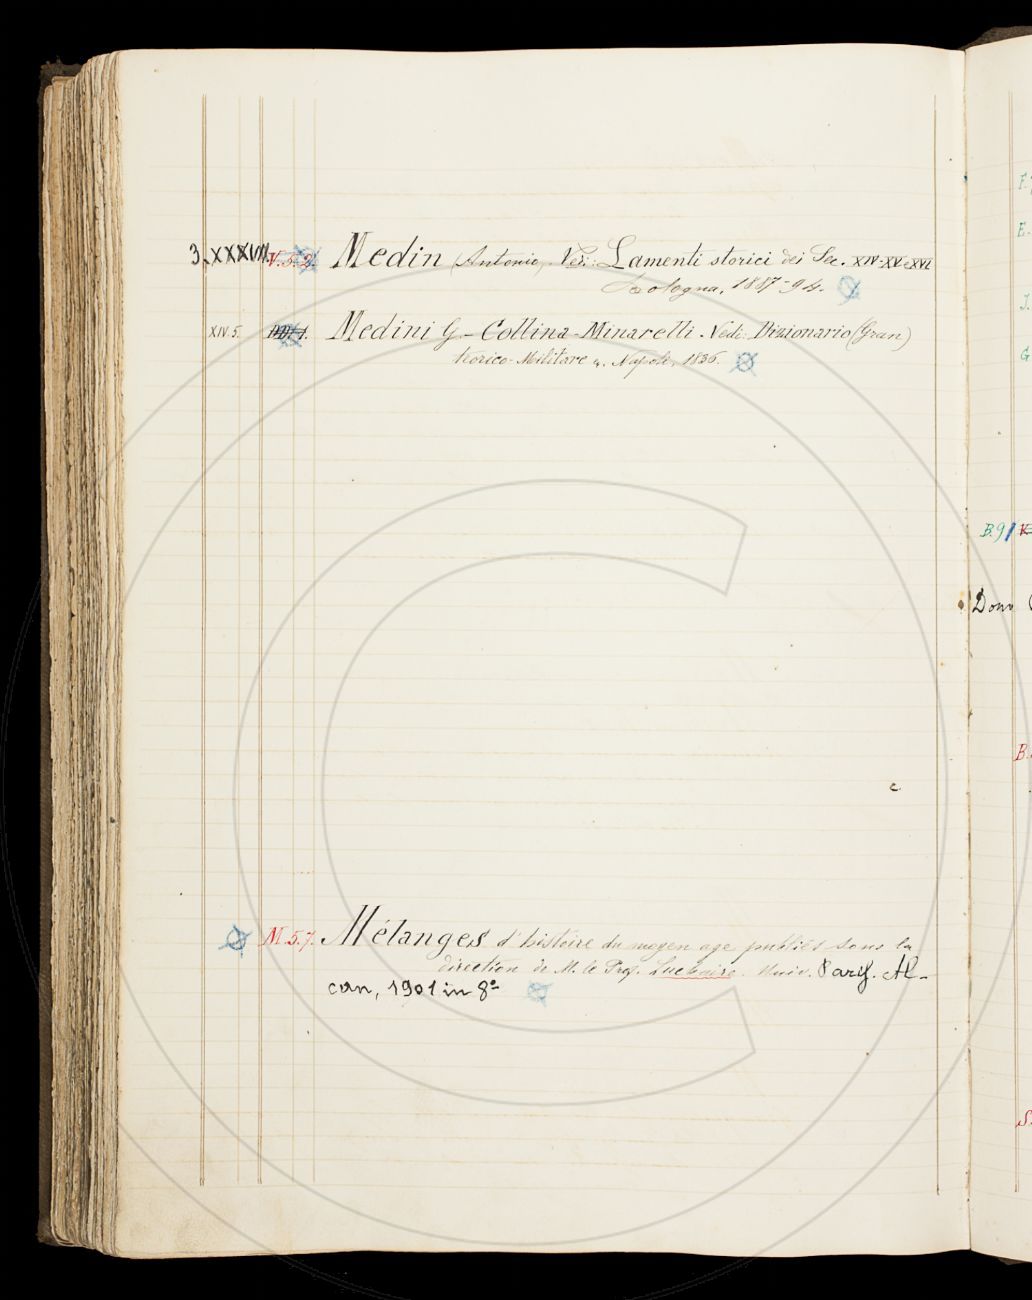 3. XXXVII. V. 5. 2. Medin (Antonio). Ved: Lamenti storici dei Sec. XIV-XV e XVI
Bologna, 1887-94.
XIV. 5. Medini G - Collina - Minarelli. Vedi: Dizionario (Gran)
Storico-Militare Napoli, 1836.
M. 5. 7. Mélanges d'histoire du moyen age publiés sous la
direction de M. le Prof. Luchaire. Univ. Paris. Al-
can, 1901 in 8°
B. 9
Dom